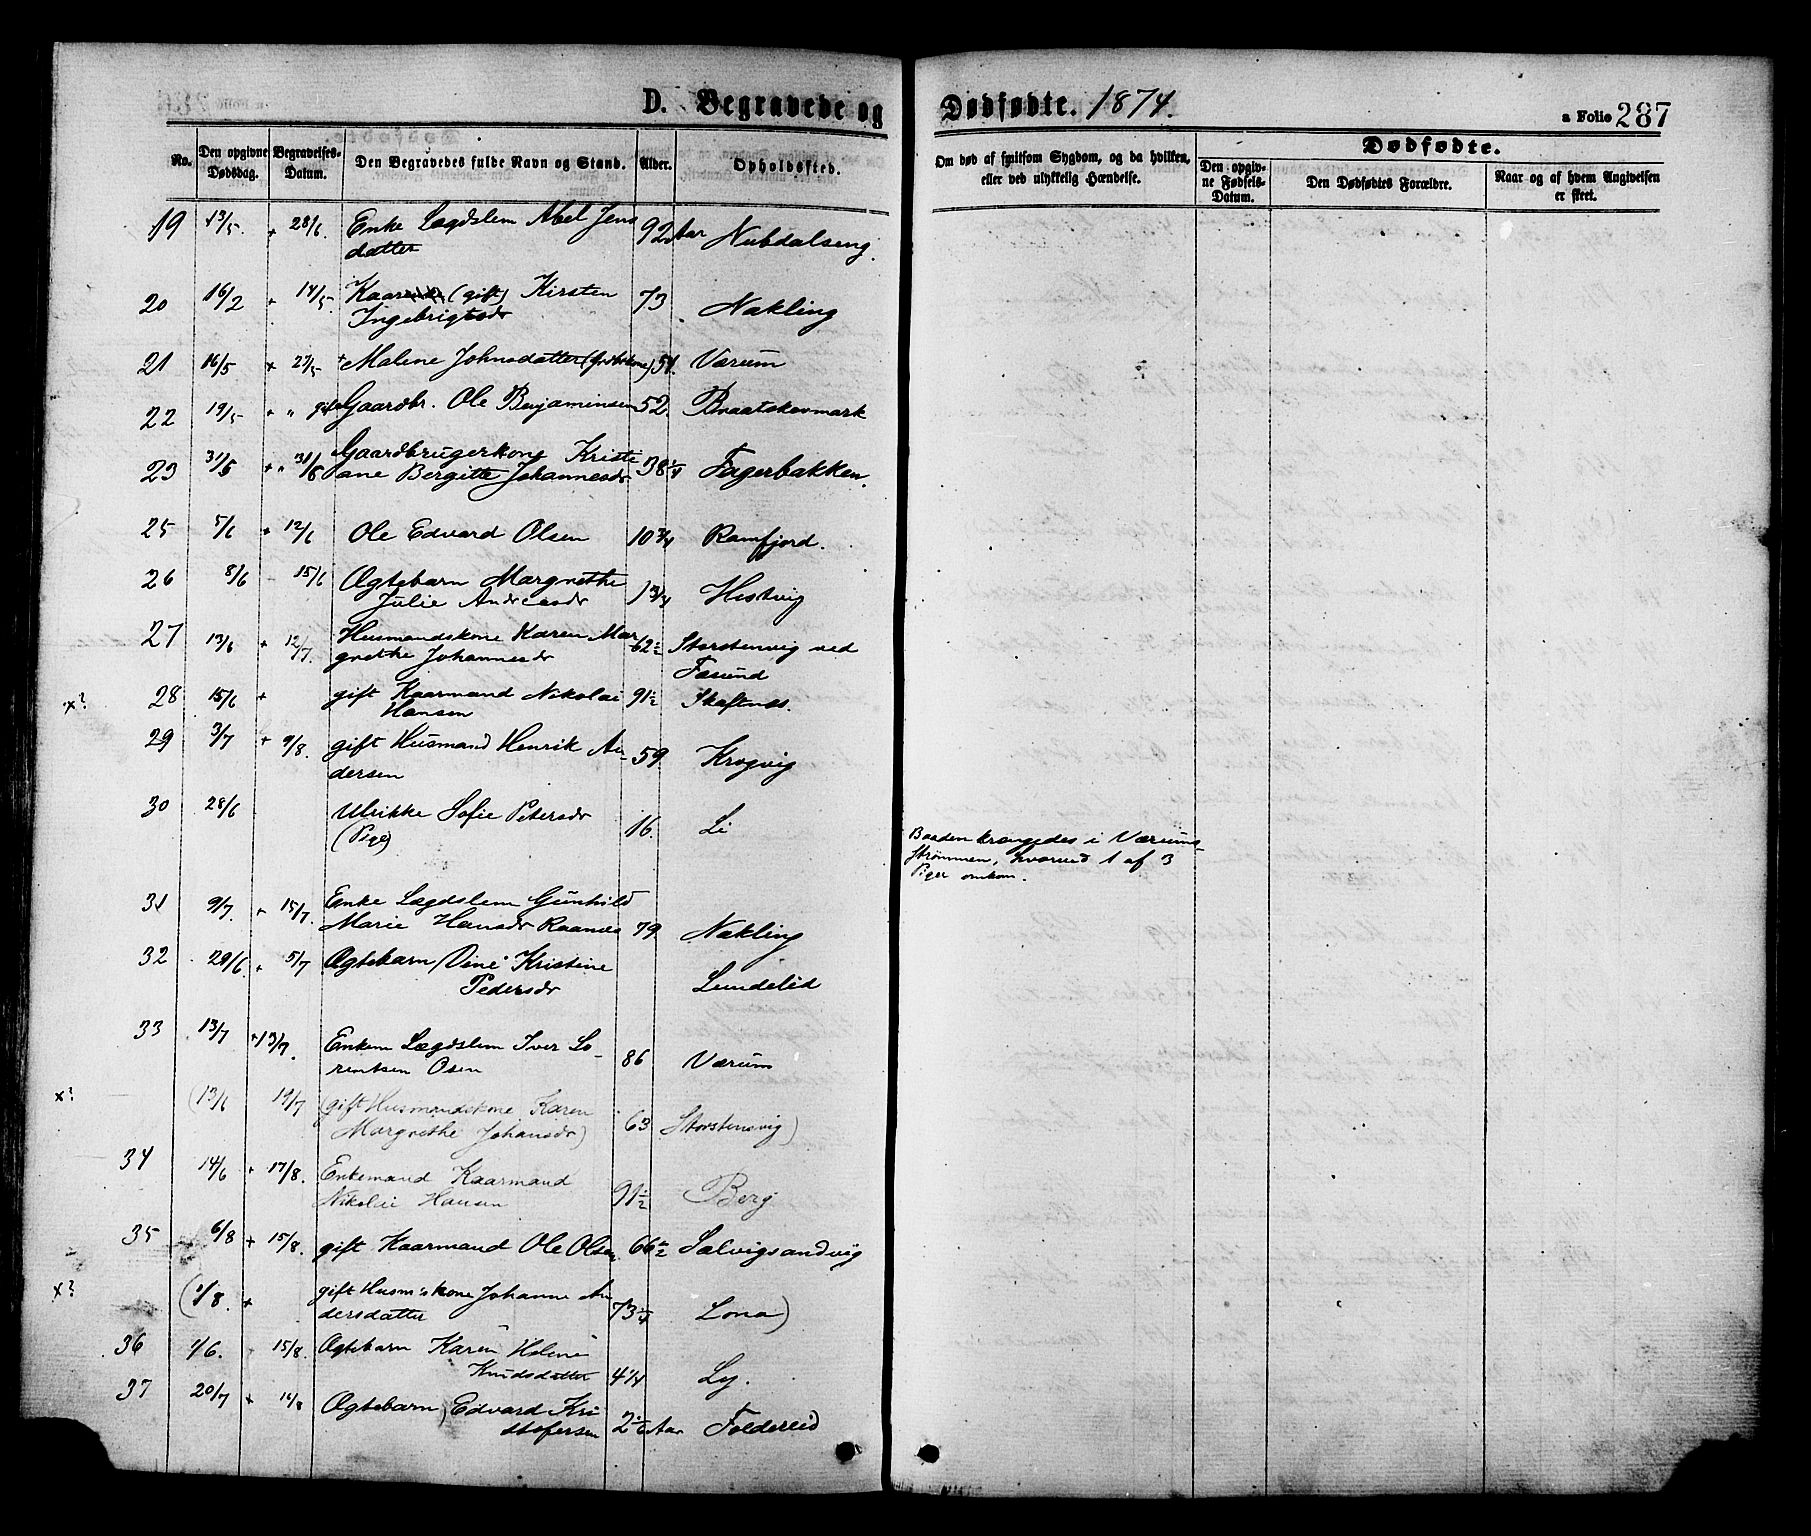 D. Begravede og Dødfødte. 1874. a Folio 287
No. Den opgivne Dødsdag. Begravelses-Datum. Den Begravedes fulde Navn og Stand. Alder. Opholdssted.
Om død af smitsom Sygdom, og da hvilken, eller ved ulykkelig Hændelse.
Dødfødte.
Den opgivne Fødsels-Datum. Den Dødfødtes Forældre. Naar og af hvem Angivelsen er skeet.
19 13/5 + 28/6. Enke Lægdslem Abel Jens 92 Aar Nubdalseng.
datter
20 16/2 + 14/5. (gift) Kirsten 73 Nakling
Ingebrigtsdr
21 16/5 + 27/5 + Malene Johnsdatter 51. Værum
22 19/5 + " gift Gaardbr. Ole Benjaminsen 52. Braatskovmark
23 31/5 + " 31/8 Gaardbrugerkone Kristi
ane Bergitte Johannesdr 38 1/4 Fagerbakken.
25 5/6 + 12/6 Ole Edvard Olsen 10 3/4 Ramfjord.
26 8/6 - 15/6 Ægtebarn Margrethe
Julie Andreasdr 1 3/4 Hestvig
27 13/6 + 12/7. Husmandskone Karen Mar
grethe Johannesdr 62 1/2 Storstenvig ved
Fosund
x? 28 15/6 + gift Kaarmand Nikolai 91 1/2 Skaftnes.
Hansen
29 3/7 + 9/8. gift Husmand Henrik An-
dersen 59. Krogvig
30 28/6 Ulrikke Sofie Petersdr
(Pige) 16. Li
Baaden krængedes i Værums-
strømmen, hvorved 1 af 3
Piger omkom.
31 9/7. + 15/7. Enke Lægdslem Gunhild
Marie Hansdr Raanes 79. Nakling
32 29/6. + 5/7 Ægtebarn Dine Kristine
Pedersdr Lundelid
33 13/7 + 13/9. Enkem Lægdslem Iver Lo-
rentsen Osen 86 Værum
x? (13/6 19/7 (gift Husmandskone Karen
Margrethe Johansdr) 63 Storstensvig)
34 14/6 + 17/8. Enkemand Kaarmand
Nikolai Hansen 91 1/2 Berg
35 6/8 + 15/8. gift Kaarmand Ole Olsen 66 1/2 Salvigsandvig
x? (1/8. + gift Husm:skone Johanne An
dersdatter 73 1/4 Lona)
36 1/6. 15/8. Ægtebarn Karen Heline
Knudsdatter 4 1/4 Ly.
37 20/7 + 16/8 Ægtebarn, Edvard Kri
stofersen 2 1/2 Aar Foldereid